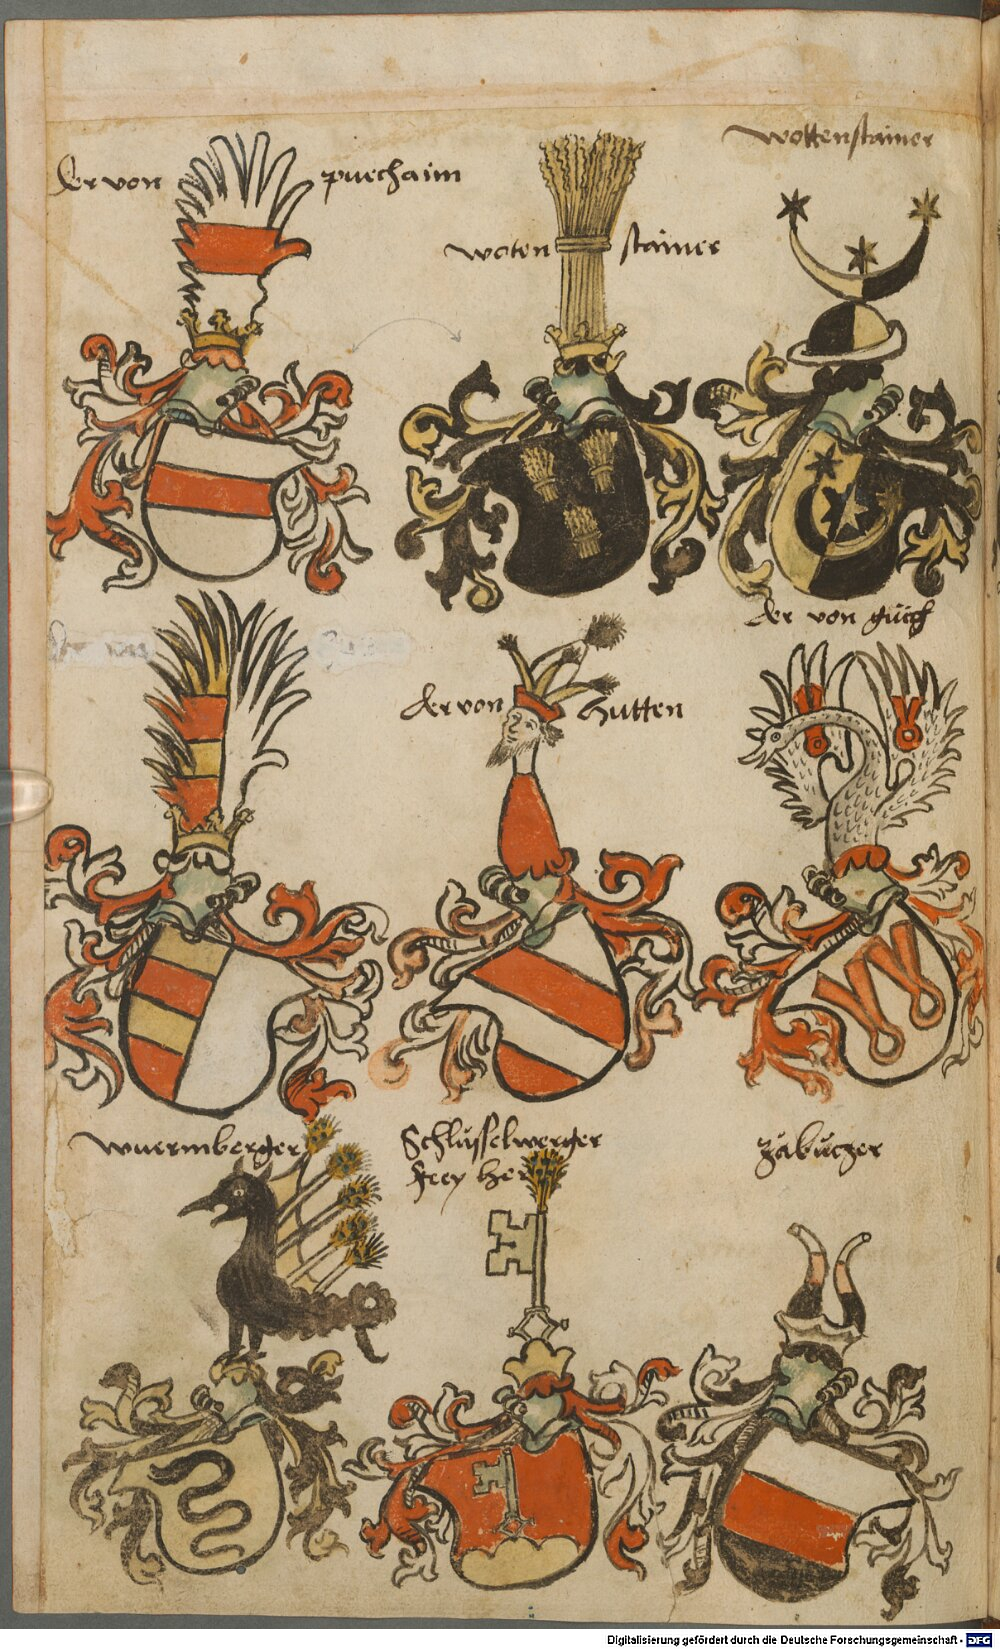 der von puechaim
woten stainer
wottenstainer
der von hutten
der von gűss
wuermberger
Schlüsselwerger
frey her
zäbuczer
Digitalisierung gefördert durch die Deutsche Forschungsgemeinschaft - DFG